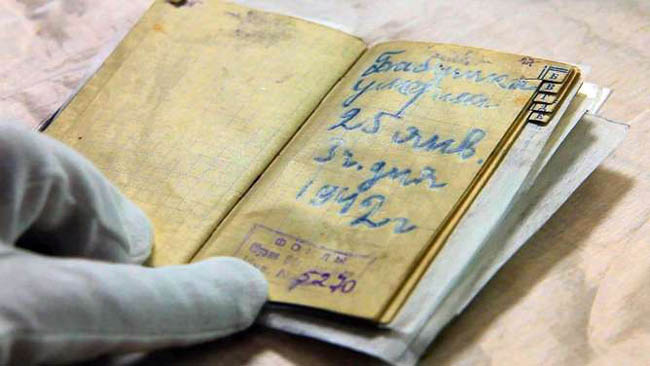 Бабушка
умерла
25 янв.
3 ч. дня
1942 г
Б
В
Г
Д
Е
ФО
5270